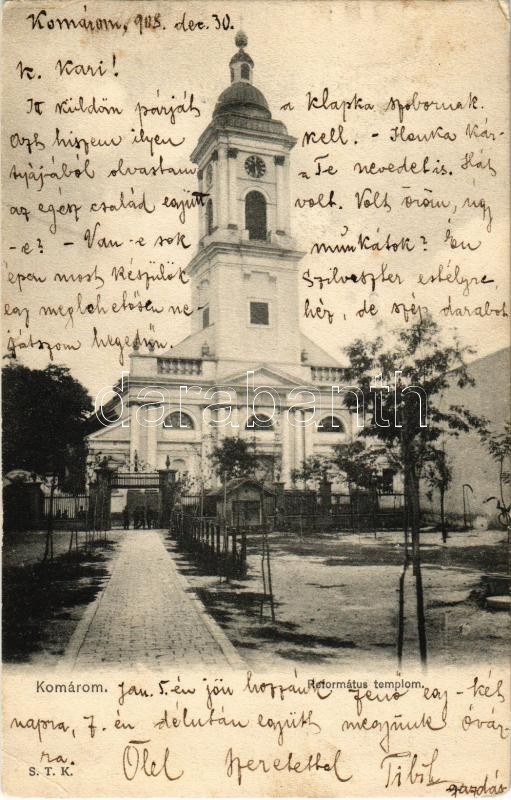 Komárom, 908. dec. 30.
K. Kari!
Itt küldöm párját a Klapka szobornak.
Azt hiszem ilyen kell. - Ilonka kár-
tyájából olvastam a Te nevedet is. Hát
az egész család együtt volt. Volt öröm, úgy
-e? - Van-e sok munkátok? Én
épen most készülök Szilveszter estélyre,
egy meglehetősen nehéz, de szép darabot
játszom hegedűn.
darabanth.com
Komárom. Református templom.
Jan. 5.-én jön hozzánk Jenő egy-két
napra, 7.-én délután együtt megyünk Óvár-
ra.
Ölel szeretettel Tibi
S. T. K.